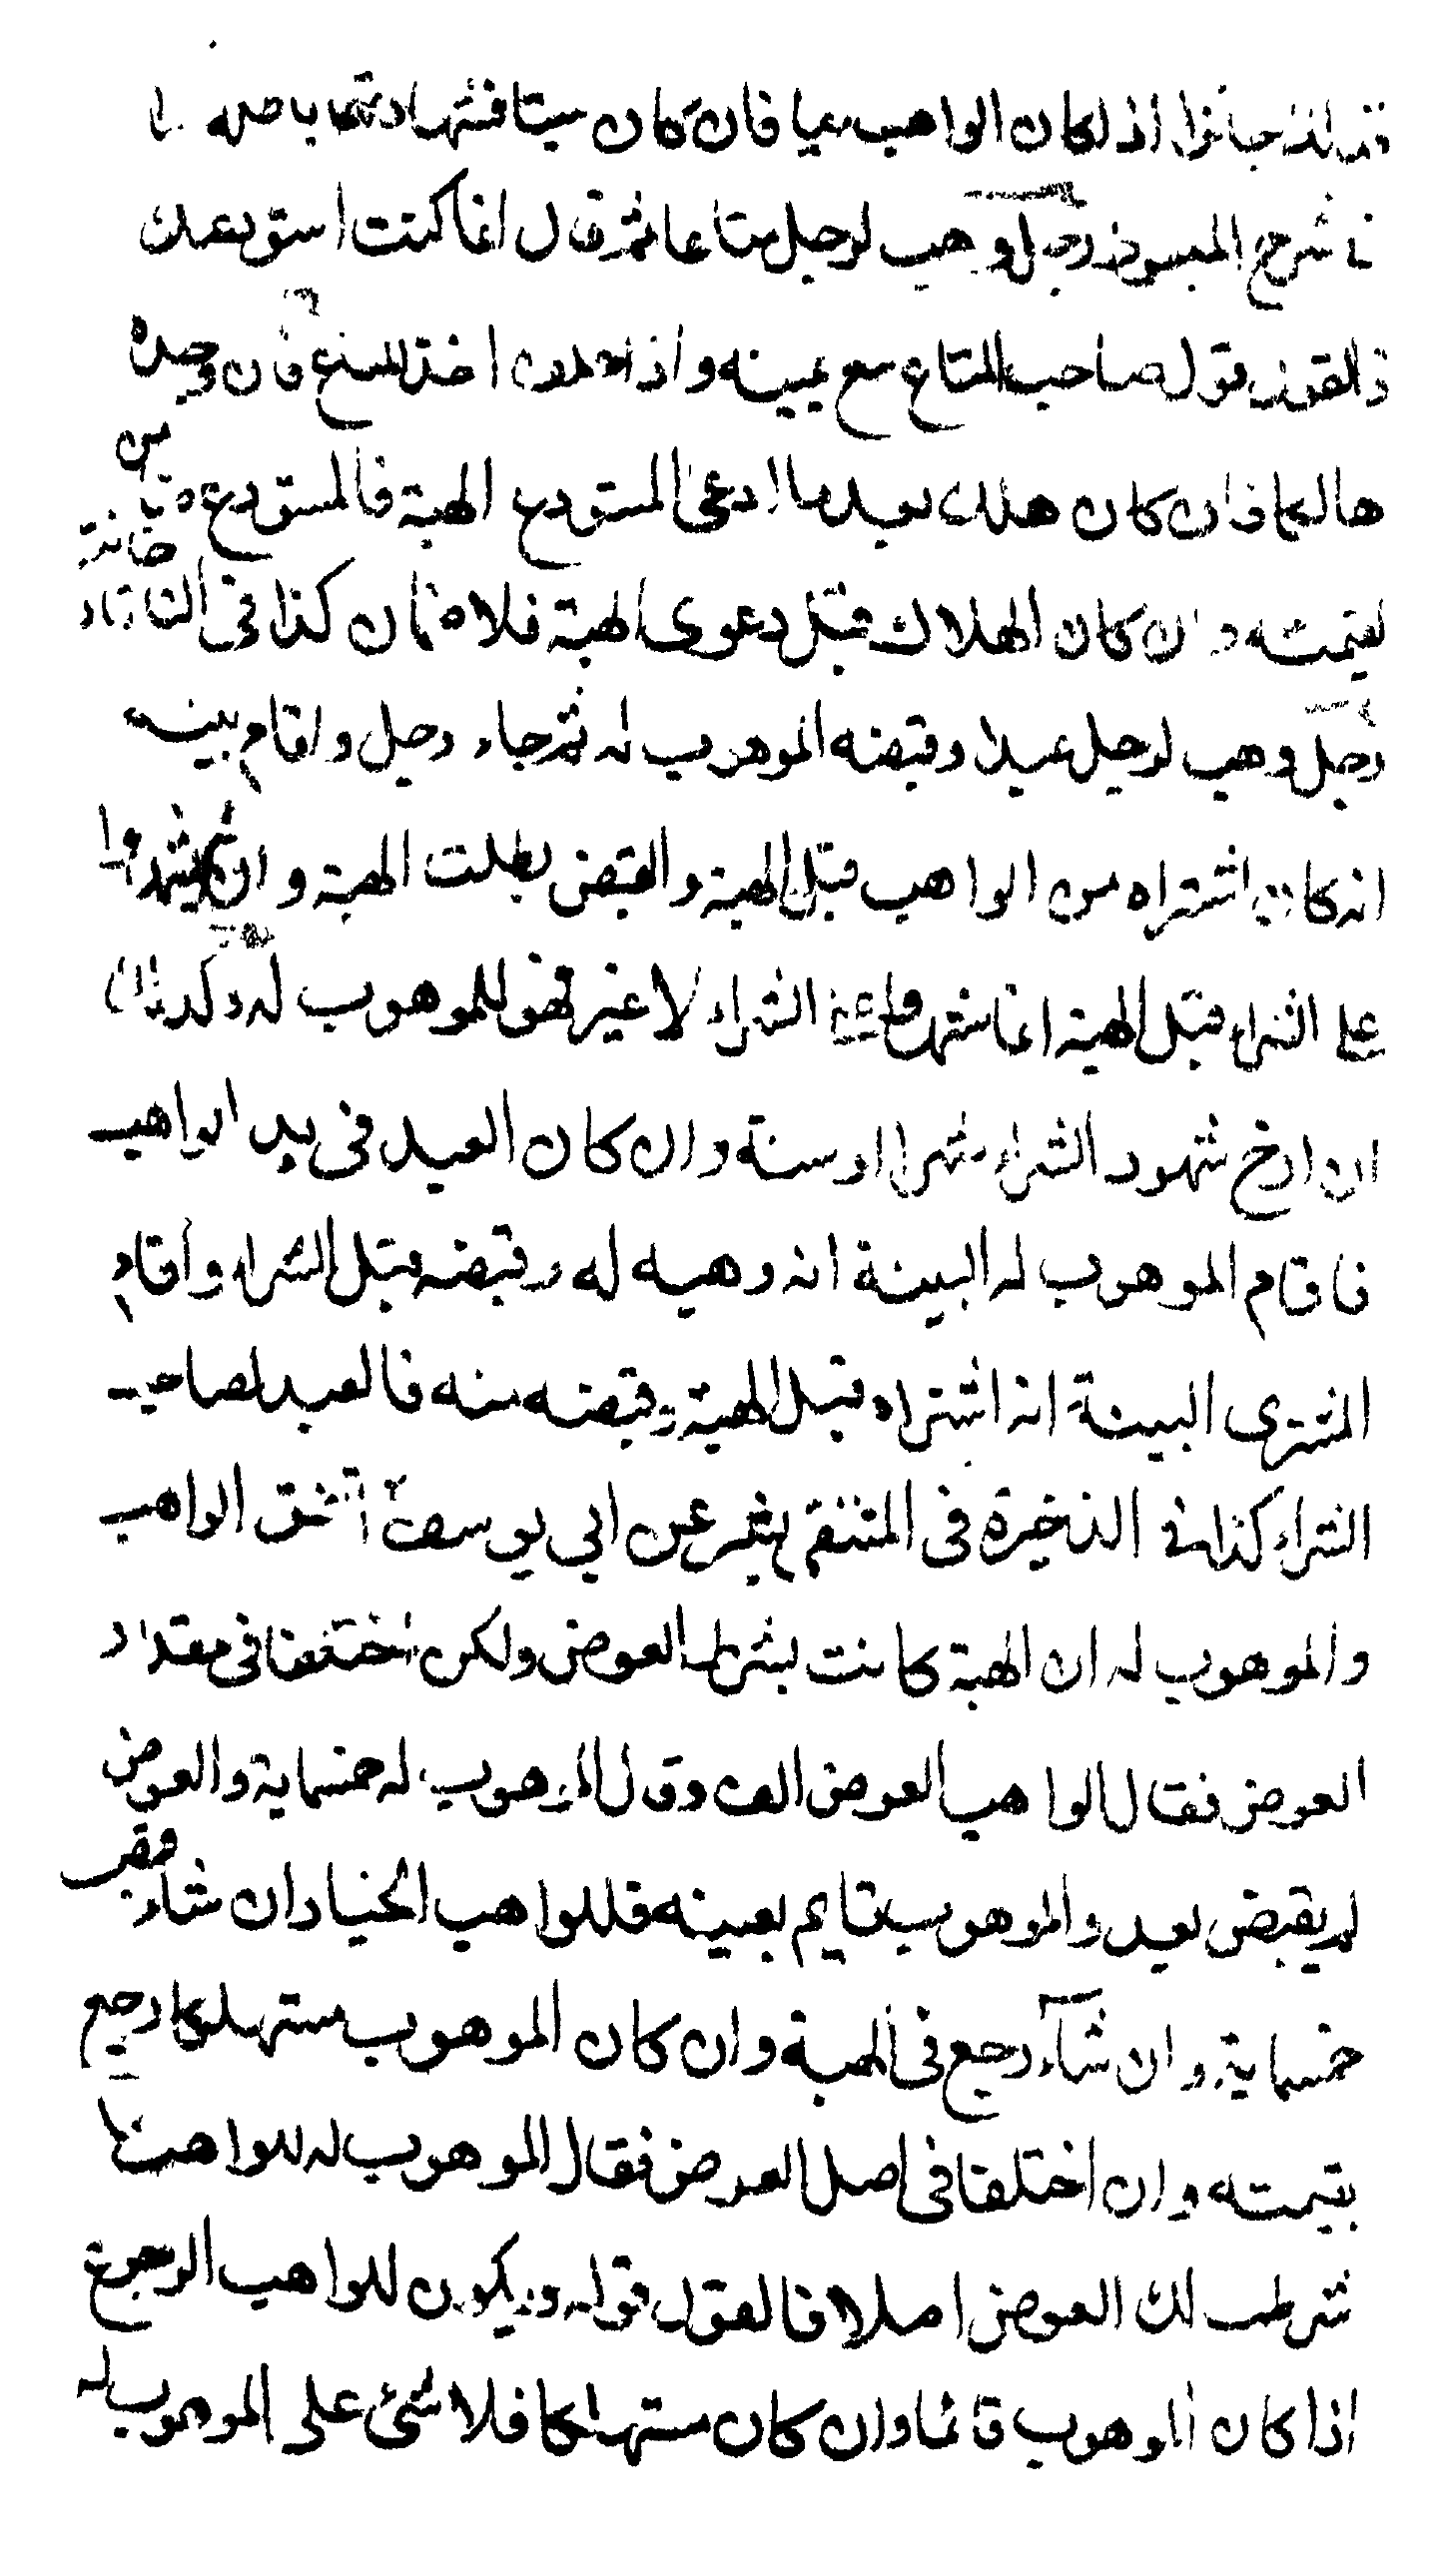 جائزا اذا كان الواهب حيا فان كان ميتا فشهادتهما باطلة
في شرح المبسوط رجل وهب لرجل متاعا ثم قال انما كنت استودعتك
فالقول قول صاحب المتاع مع يمينه واذا اخذ المتاع فان وجده
هالكا فان كان هلك بعد ما ادعى المستودع الهبة فالمستودع ضامن
لقيمته وان كان الهلاك قبل دعوى الهبة فلا ضمان كذا في التاتارخانية
رجل وهب لرجل عبدا وقبضه الموهوب له ثم جاء رجل واقام بينة
انه كان اشتراه من الواهب قبل الهبة والقبض بطلت الهبة وان لم يشهدوا
على الشراء قبل الهبة انما شهدوا على الشراء لا غير فهو للموهوب له وكذا
ان ارخ شهود الشراء شهرا او سنة وان كان العبد في يد الواهب
فاقام الموهوب له البينة انه وهبه له وقبضه قبل الشراء واقام
المشترى البينة انه اشتراه قبل الهبة وقبضه منه فالعبد لصاحب
الشراء كذا في الذخيرة في المنتقى بشر عن ابي يوسف اتفق الواهب
والموهوب له ان الهبة كانت بشرط العوض ولكن اختلفا في مقدار
العوض فقال الواهب العوض الف وقال الموهوب له خمسماية والعوض
لم يقبض بعد والموهوب قايم بعينه فللواهب الخيار ان شاء
خمسماية وان شآء رجع في الهبة وان كان الموهوب مستهلكا رجع
بقيمته وان اختلفا في اصل العوض فقال الموهوب له للواهب ما
شرطت لك العوض اصلا فالقول قوله ويكون للواهب الرجوع
اذا كان الموهوب قائما وان كان مستهلكا فلا شئ على الموهوب له